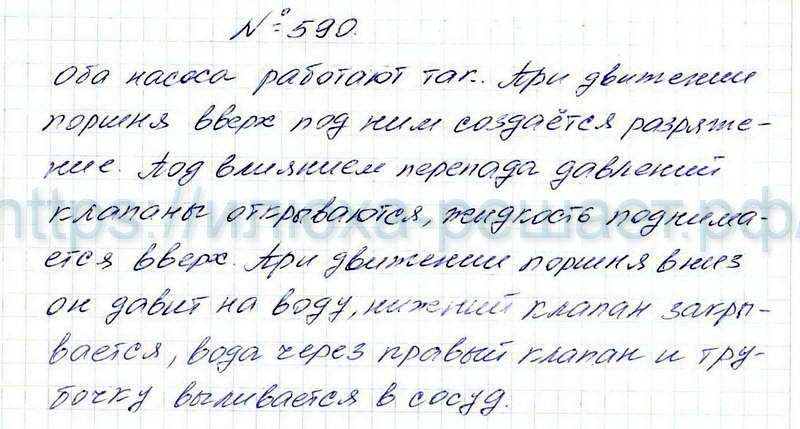 № 590.
Оба насоса работают так. При движении
поршня вверх под ним создаётся разряже-
ние. Под влиянием перепада давлений
клапаны открываются, жидкость поднима-
ется вверх. При движении поршня вниз
он давит на воду, нижний клапан закры-
вается, вода через правый клапан и тру-
бочку выливается в сосуд.